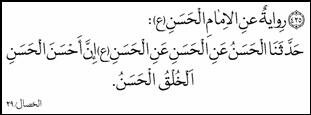 ﴿٤٢٥﴾ رِوايَةٌ عَنِ الإمَامِ الْحَسَنِ (ع):
حَدَّثَنَا الْحَسَنُ عَنِ الْحَسَنِ عَنِ الْحَسَنِ (ع) إِنَّ أَحْسَنَ الْحَسَنِ
اَلْخُلُقُ الْحَسَنُ.
الخصال: ٢٩